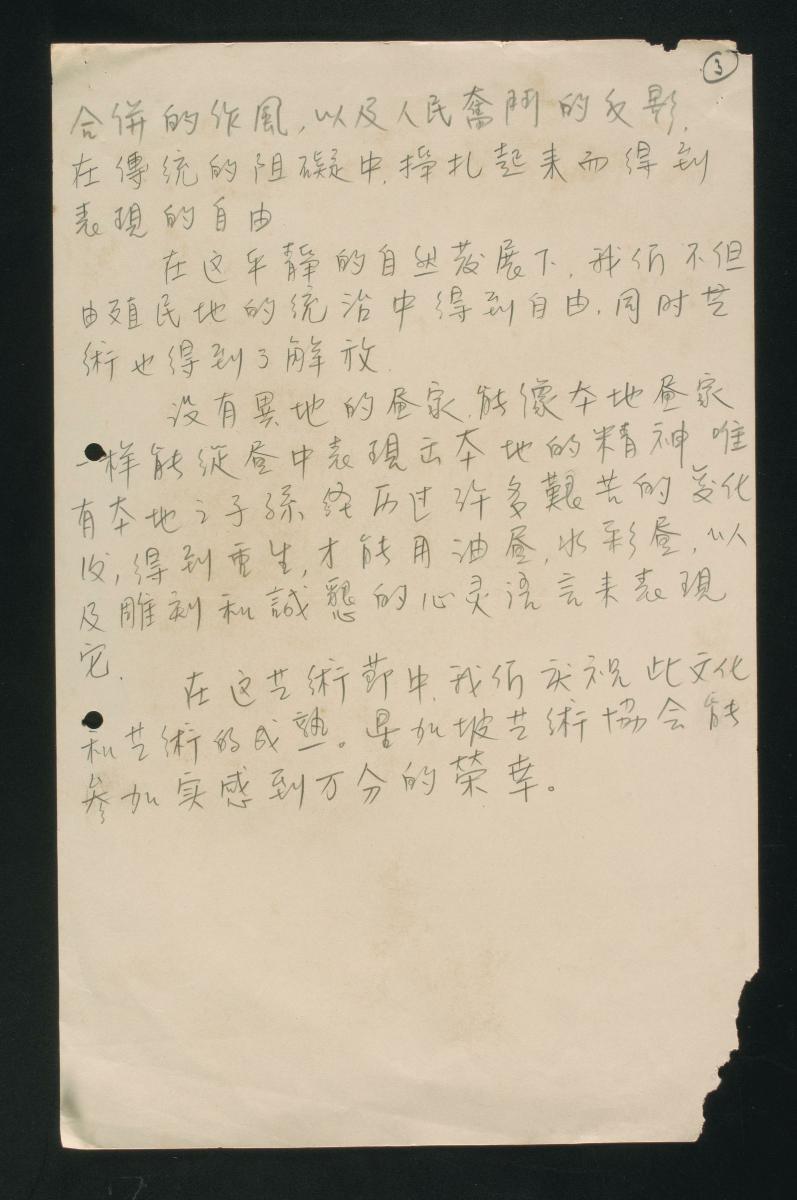 3
合併的作風，以及人民奮鬥的反影，
在傳統的阻礙中，掙扎起来而得到
表現的自由
在这平靜的自然發展下，我们不但
由殖民地的统治中得到自由，同时艺
術也得到了解放.
没有異地的画家，能像本地画家
一样能從画中表現出本地的精神 唯
有本地之子孫 经历过许多艱苦的变化
後，得到重生，才能用油画，水彩画，以
及雕刻和誠懇的心灵语言来表現
它.
在这艺術節中，我们庆祝此文化
和艺術的成熟。星加坡艺術協会能
參加实感到万分的榮幸。